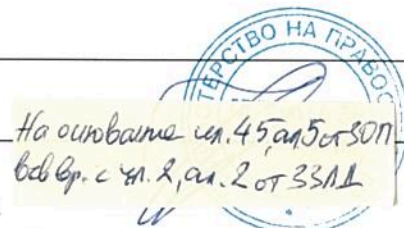 ТЕРСТВО НА ПРАВОС
На основание чл. 45, ал 5 от ЗОП
във вр. с чл. 2, ал. 2 от ЗЗЛД